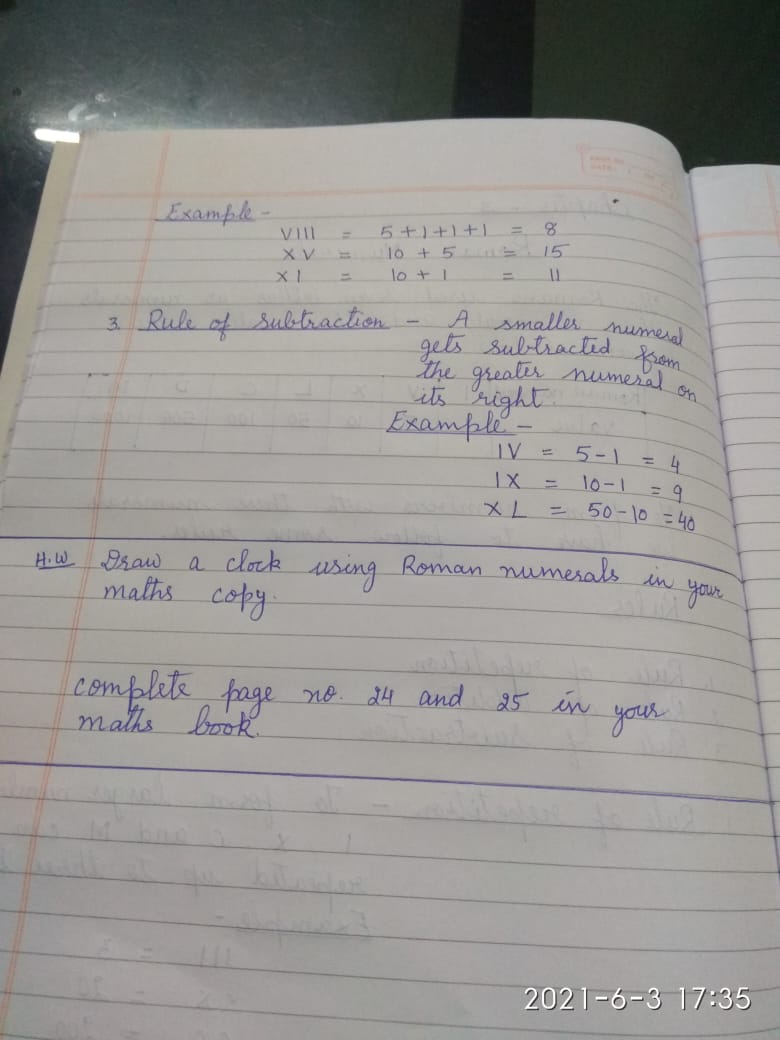 Example -
VIII = 5+1+1+1 = 8
XV = 10 + 5 = 15
XI = 10 + 1 = 11
3. Rule of Subtraction - A smaller numeral
gets subtracted from
the greater numeral on
its right.
Example -
IV = 5-1 = 4
IX = 10-1 = 9
XL = 50-10 = 40
H.W Draw a clock using Roman numerals in your
maths copy.
complete page no. 24 and 25 in your
maths book.
2021-6-3 17:35